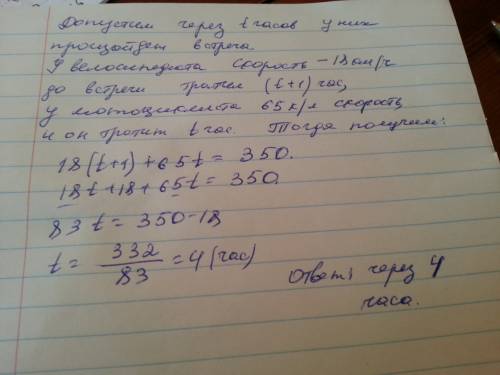 Допустим через t часов у них
произойдет встреча
У велосипедиста скорость – 18 км/ч
до встречи тратит (t+1) час,
у мотоциклиста 65 к/м скорость
и он тратит t час. Тогда получим:
18(t+1)+65t = 350.
18t+18+65t = 350.
83t = 350-18
t = 332/83 = 4 (час)
Ответ: через 4
часа.